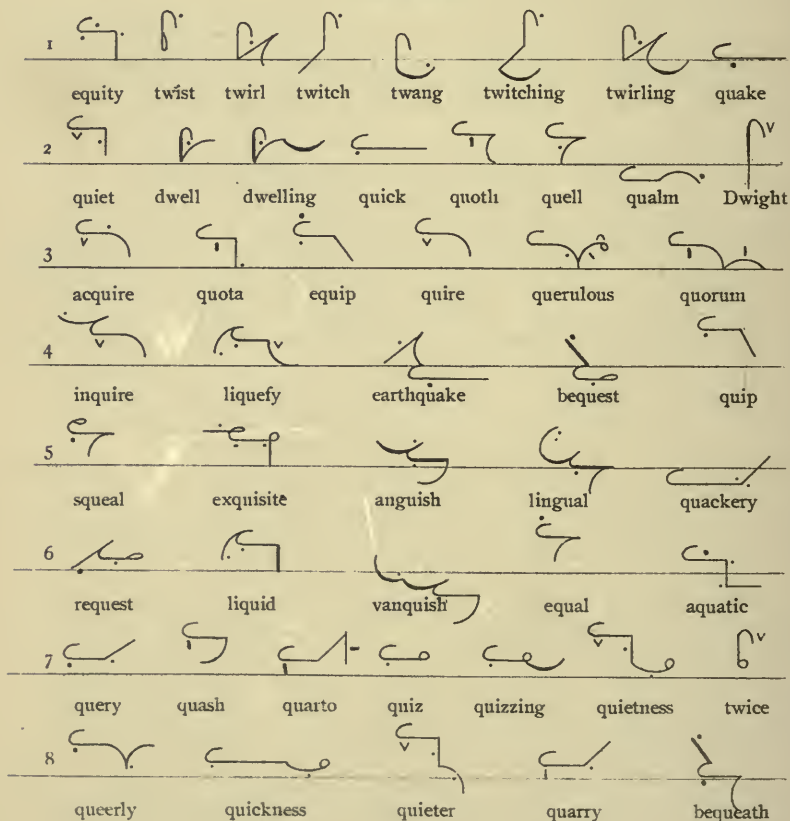 1
equity twist twirl twitch twang twitching twirling quake
2
quiet dwell dwelling quick quoth quell qualm Dwight
3
acquire quota equip quire querulous quorum
4
inquire liquefy earthquake bequest quip
5
squeal exquisite anguish lingual quackery
6
request liquid vanquish equal aquatic
7
query quash quarto quiz quizzing quietness twice
8
queerly quickness quieter quarry bequeath